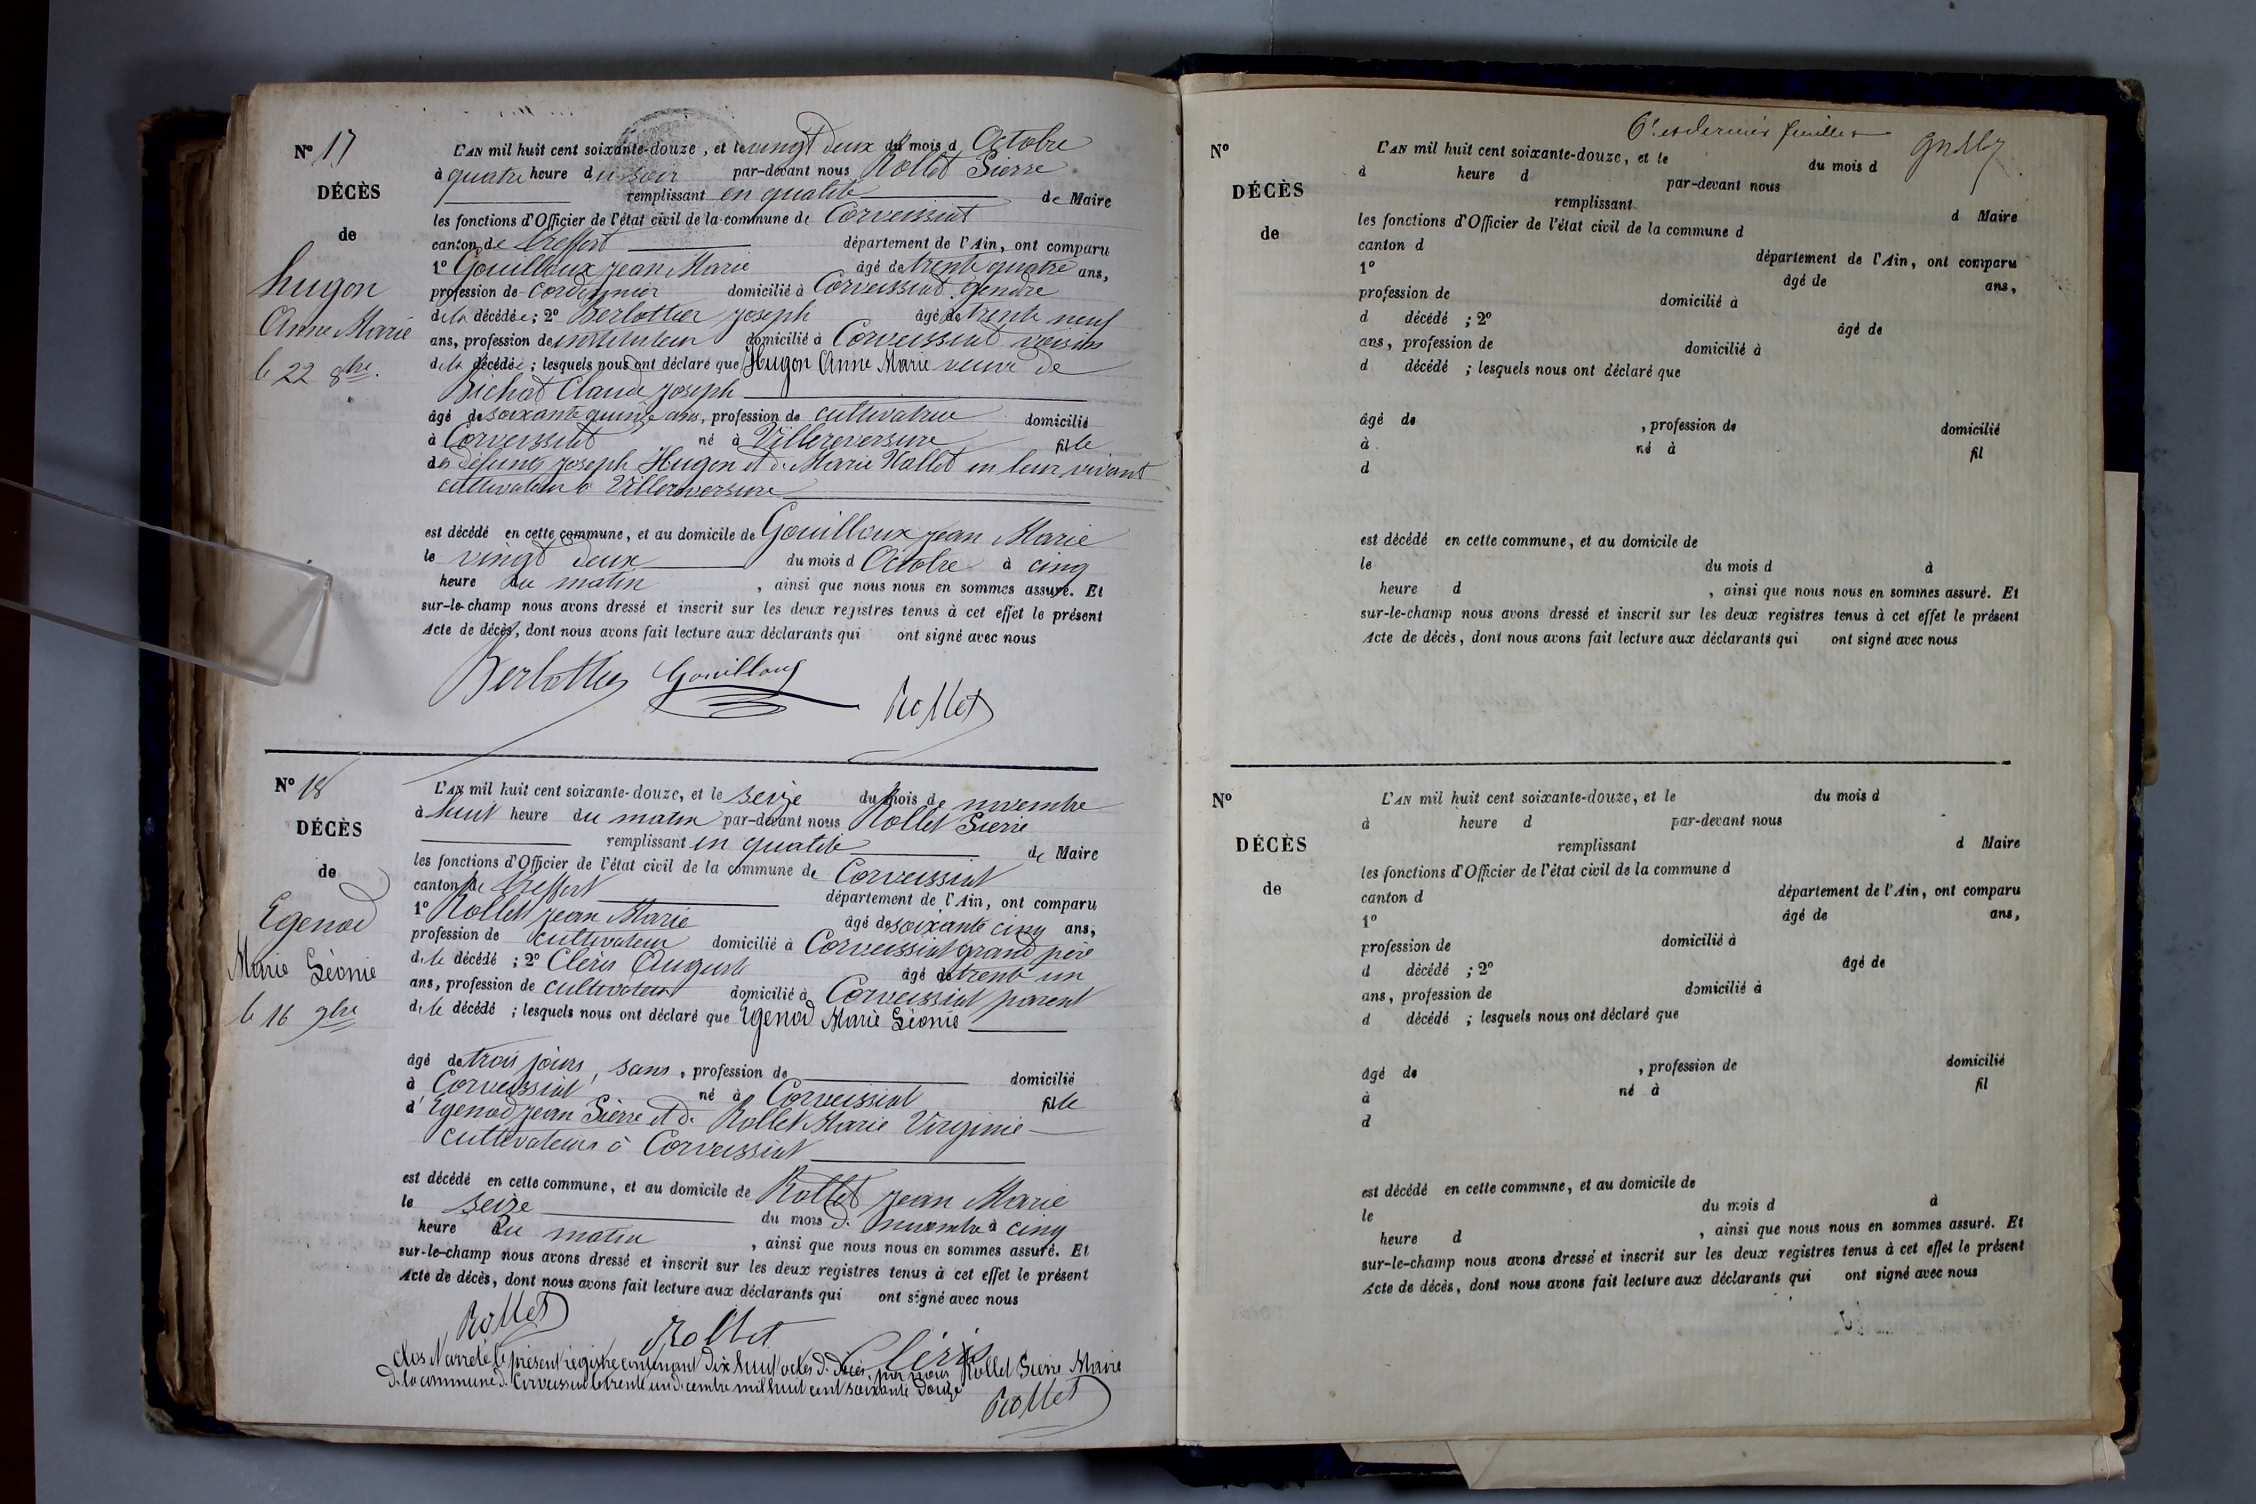 N° 17
DÉCÈS
de
hugon
Anne Marie
le 22 8bre.
L'AN mil huit cent soixante-douze, et le vingt deux du mois d Octobre
à quatre heure du soir par-devant nous Rollet Pierre
remplissant en qualité de Maire
les fonctions d'Officier de l'état civil de la commune de Corveissiat
canton de Treffort département de l'Ain, ont comparu
1° Gouilloux jean Marie âgé de trente quatre ans,
profession de cordonnier domicilié à Corveissiat gendre
de la décédée; 2° Berlottier joseph âgé de trente neuf
ans, profession de instituteur domicilié à Corveissiat voisin
de la décédée; lesquels nous ont déclaré que Hugon Anne Marie veuve de
Bichat Claude joseph
âgé de soixante quinze ans, profession de cultivatrice domicilié
à Corveissiat né à Villereversure fille
des défunts joseph Hugon et de Marie Vallet en leur vivant
cultivateur à Villereversure
est décédé en cette commune, et au domicile de Gouilloux jean Marie
le vingt deux du mois d Octobre à cinq
heure du matin, ainsi que nous nous en sommes assuré. Et
sur-le-champ nous avons dressé et inscrit sur les deux registres tenus à cet effet le présent
Acte de décès, dont nous avons fait lecture aux déclarants qui ont signé avec nous
Berlottier Gouilloux
Rollet
N° 18
DÉCÈS
de
Egenod
Marie Léonie
le 16 9bre
L'AN mil huit cent soixante-douze, et le seize du mois de novembre
à huit heure du matin par-devant nous Rollet Pierre
remplissant en qualité de Maire
les fonctions d'Officier de l'état civil de la commune de Corveissiat
canton de Treffort département de l'Ain, ont comparu
1° Rollet jean Marie âgé de soixante cinq ans,
profession de cultivateur domicilié à Corveissiat grand père
de la décédé; 2° Cléris Auguste âgé de trente un
ans, profession de cultivateur domicilié à Corveissiat parent
de la décédé; lesquels nous ont déclaré que Egenod Marie Léonie
âgé de trois jours, sans, profession de domicilié
à Corveissiat né à Corveissiat fille
d'Egenod jean Pierre et de Rollet Marie Virginie
cultivateurs à Corveissiat
est décédé en cette commune, et au domicile de Rollet jean Marie
le seize du mois de novembre à cinq
heure du matin, ainsi que nous nous en sommes assuré. Et
sur-le-champ nous avons dressé et inscrit sur les deux registres tenus à cet effet le présent
Acte de décès, dont nous avons fait lecture aux déclarants qui ont signé avec nous
Rollet Rollet Cléris
clos et arrêté le présent registre contenant dix huit actes de décès par nous Rollet Pierre Maire
de la commune de Corveissiat le trente un décembre mil huit cent soixante douze
Rollet
6e et dernier feuillet
N°
DÉCÈS
de
L'AN mil huit cent soixante-douze, et le du mois d
à heure d par-devant nous
remplissant d Maire
les fonctions d'Officier de l'état civil de la commune d
canton d département de l'Ain, ont comparu
1° âgé de ans,
profession de domicilié à
d décédé; 2° âgé de
ans, profession de domicilié à
d décédé; lesquels nous ont déclaré que
âgé de, profession de domicilié
à né à fil
d
est décédé en cette commune, et au domicile de
le du mois d à
heure d, ainsi que nous nous en sommes assuré. Et
sur-le-champ nous avons dressé et inscrit sur les deux registres tenus à cet effet le présent
Acte de décès, dont nous avons fait lecture aux déclarants qui ont signé avec nous
N°
DÉCÈS
de
L'AN mil huit cent soixante-douze, et le du mois d
à heure d par-devant nous
remplissant d Maire
les fonctions d'Officier de l'état civil de la commune d
canton d département de l'Ain, ont comparu
1° âgé de ans,
profession de domicilié à
d décédé; 2° âgé de
ans, profession de domicilié à
d décédé; lesquels nous ont déclaré que
âgé de, profession de domicilié
à né à fil
d
est décédé en cette commune, et au domicile de
le du mois d à
heure d, ainsi que nous nous en sommes assuré. Et
sur-le-champ nous avons dressé et inscrit sur les deux registres tenus à cet effet le présent
Acte de décès, dont nous avons fait lecture aux déclarants qui ont signé avec nous